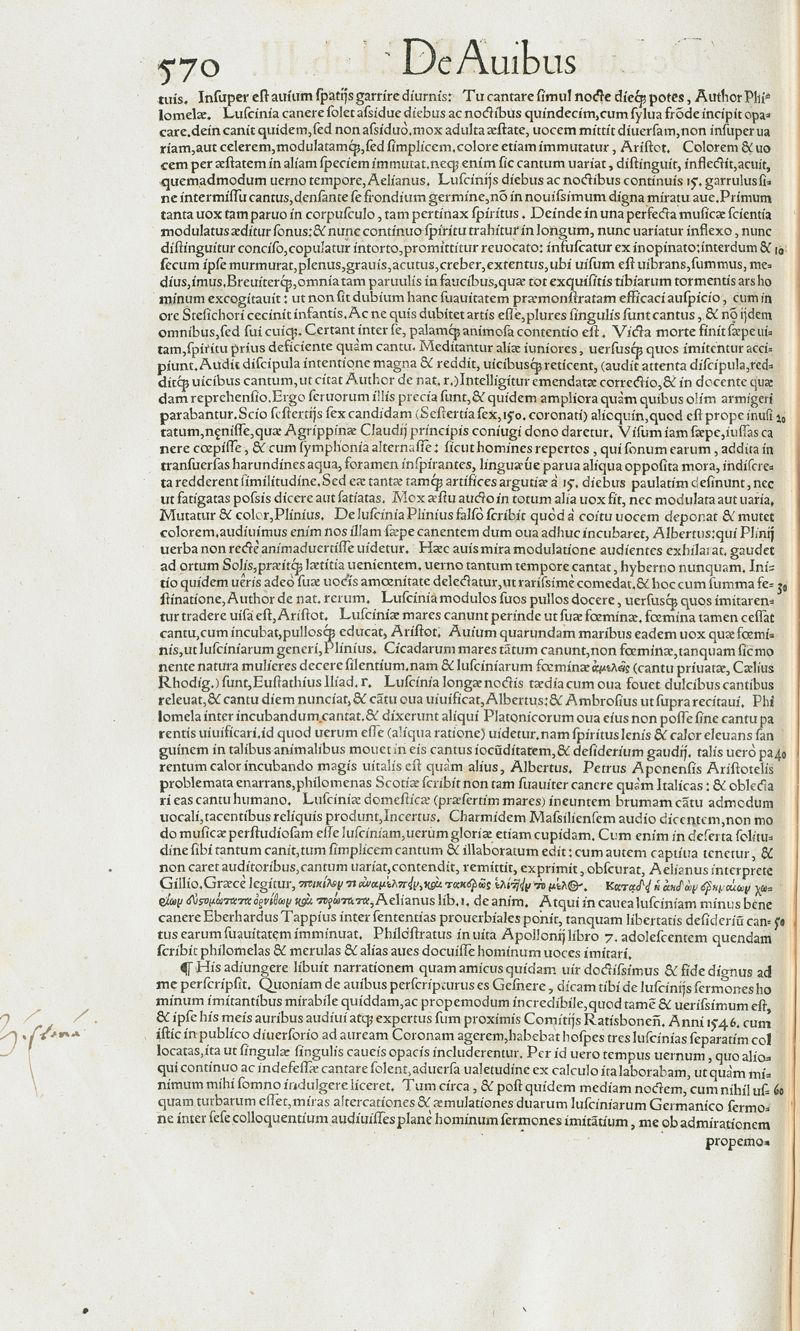 570 De Auibus
tuis. Insuper est auium spatijs garrire diurnis: Tu cantare simul nocte dieq́ potes, Author Phi=
lomelæ. Luscinia canere solet assidue diebus ac noctibus quindecim, cum sylua frōde incipit opa=
care. dein canit quidem, sed non assiduò. mox adulta æstate, uocem mittit diuersam, non insuper ua
riam, aut celerem, modulatamq́, sed simplicem. colore etiam immutatur, Aristot. Colorem & uo
cem per æstatem in aliam speciem immutat. neq; enim sic cantum uariat, distinguit, inflectit, acuit,
quemadmodum uerno tempore, Aelianus. Luscinijs diebus ac noctibus continuis 15. garrulus si=
ne intermissu cantus, densante se frondium germine, nō in nouissimum digna miratu aue. Primum
tanta uox tam paruo in corpusculo, tam pertinax spiritus. Deinde in una perfecta musicæ scientia
modulatus æditur sonus: & nunc continuo spiritu trahitur in longum, nunc uariatur inflexo, nunc
distinguitur conciso, copulatur intorto, promittitur reuocato: infuscatur ex inopinato: interdum & 10
secum ipse murmurat, plenus, grauis, acutus, creber, extentus, ubi uisum est uibrans, summus, me=
dius, imus. Breuiterq́, omnia tam paruulis in faucibus, quæ tot exquisitis tibiarum tormentis ars ho
minum excogitauit: ut non sit dubium hanc suauitatem præmonstratam efficaci auspicio, cum in
ore Stesichori cecinit infantis. Ac ne quis dubitet artis esse, plures singulis sunt cantus, & nō ijdem
omnibus, sed sui cuiq;. Certant inter se, palamq́ animosa contentio est. Victa morte finit sæpe ui=
tam, spiritu prius deficiente quàm cantu. Meditantur aliæ iuniores, uersusq́ quos imitentur acci=
piunt. Audit discipula intentione magna & reddit, uicibusq́ reticent, (audit attenta discipula, red=
ditq́ uicibus cantum, ut citat Author de nat. r.) Intelligitur emendatæ correctio, & in docente quæ
dam reprehensio. Ergo seruorum illis precia sunt, & quidem ampliora quàm quibus olim armigeri
parabantur. Scio sestertijs sex candidam (Sestertia sex, 150. coronati) alioquin, quod est prope inusi 20
tatum, uęnisse, quæ Agrippinæ Claudij principis coniugi dono daretur. Visum iam sæpe, iussas ca
nere cœpisse, & cum symphonia alternasse: sicut homines repertos, qui sonum earum, addita in
transuersas harundines aqua, foramen inspirantes, linguæúe parua aliqua opposita mora, indiscre=
ta redderent similitudine. Sed eæ tantæ tamq́ artifices argutiæ à 15. diebus paulatim desinunt, nec
ut fatigatas possis dicere aut satiatas. Mox æstu aucto in totum alia uox fit, nec modulata aut uaria.
Mutatur & color, Plinius. De luscinia Plinius falsò scribit quòd à coitu uocem deponat & mutet
colorem. audiuimus enim nos illam sæpe canentem dum oua adhuc incubaret, Albertus: qui Plinij
uerba non rectè animaduertisse uidetur. Hæc auis mira modulatione audientes exhilarat. gaudet
ad ortum Solis, præitq́ lætitia uenientem. uerno tantum tempore cantat, hyberno nunquam. Ini=
tio quidem ueris adeò suæ uocis amœnitate delectatur, ut rarissimè comedat, & hoc cum summa fe= 30
stinatione, Author de nat. rerum. Luscinia modulos suos pullos docere, uersusq́ quos imitaren=
tur tradere uisa est, Aristot. Lusciniæ mares canunt perinde ut suæ fœminæ. fœmina tamen cessat
cantu, cum incubat, pullosq́ educat, Aristot. Auium quarundam maribus eadem uox quæ fœmi=
nis, ut lusciniarum generi, Plinius. Cicadarum mares tātum canunt, non fœminæ, tanquam sic mo
nente natura mulieres decere silentium. nam & lusciniarum fœminæ ἀμελῶς (cantu priuatæ, Cælius
Rhodig.) sunt, Eustathius Iliad. r. Luscinia longæ noctis tædia cum oua fouet dulcibus cantibus
releuat, & cantu diem nunciat, & cātu oua uiuificat, Albertus: & Ambrosius ut supra recitaui. Phi
lomela inter incubandum cantat. & dixerunt aliqui Platonicorum oua eius non posse sine cantu pa
rentis uiuificari. id quod uerum esse (aliqua ratione) uidetur. nam spiritus lenis & calor eleuans san
guinem in talibus animalibus mouet in eis cantus iocūditatem, & desiderium gaudij. talis uerò pa 40
rentum calor incubando magis uitalis est quàm alius, Albertus. Petrus Aponensis Aristotelis
problemata enarrans, philomenas Scotiæ scribit non tam suauiter canere quàm Italicas: & oblecta
ri eas cantu humano. Lusciniæ domesticæ (præsertim mares) ineuntem brumam cātu admodum
uocali, tacentibus reliquis produnt, Incertus. Charmidem Massiliensem audio dicentem, non mo
do musicæ perstudiosam esse lusciniam, uerum gloriæ etiam cupidam. Cum enim in deserta solitu=
dine sibi tantum canit, tum simplicem cantum & illaboratum edit: cum autem captiua tenetur, &
non caret auditoribus, cantum uariat, contendit, remittit, exprimit, obscurat, Aelianus interprete
Gillio. Græcè legitur, ποικίλον τι ἀναμέλπειν, καὶ τακερῶς ἑλίττειν τὸ μέλος.
Aelianus lib. 1. de anim. Atqui in cauea lusciniam minus bene
canere Eberhardus Tappius inter sententias prouerbiales ponit, tanquam libertatis desideriū can= 50
tus earum suauitatem imminuat. Philostratus in uita Apollonij libro 7. adolescentem quendam
scribit philomelas & merulas & alias aues docuisse hominum uoces imitari.
¶ His adiungere libuit narrationem quam amicus quidam uir doctissimus & fide dignus ad
me perscripsit. Quoniam de auibus perscripturus es Gesnere, dicam tibi de luscinijs sermones ho
minum imitantibus mirabile quiddam, ac propemodum incredibile, quod tamē & uerissimum est,
& ipse his meis auribus audiui atq; expertus sum proximis Comitijs Ratisboneñ. Anni 1546. cum
istic in publico diuersorio ad auream Coronam agerem, habebat hospes tres luscinias separatim col
locatas, ita ut singulæ singulis caueis opacis includerentur. Per id uero tempus uernum, quo alio=
qui continuo ac indefessæ cantare solent, aduersa ualetudine ex calculo ita laborabam, ut quàm mi=
nimum mihi somno indulgere liceret. Tum circa, & post quidem mediam noctem, cum nihil us= 60
quam turbarum esset, miras altercationes & æmulationes duarum lusciniarum Germanico sermo=
ne inter sese colloquentium audiuisses planè hominum sermones imitātium, me ob admirationem
propemo=